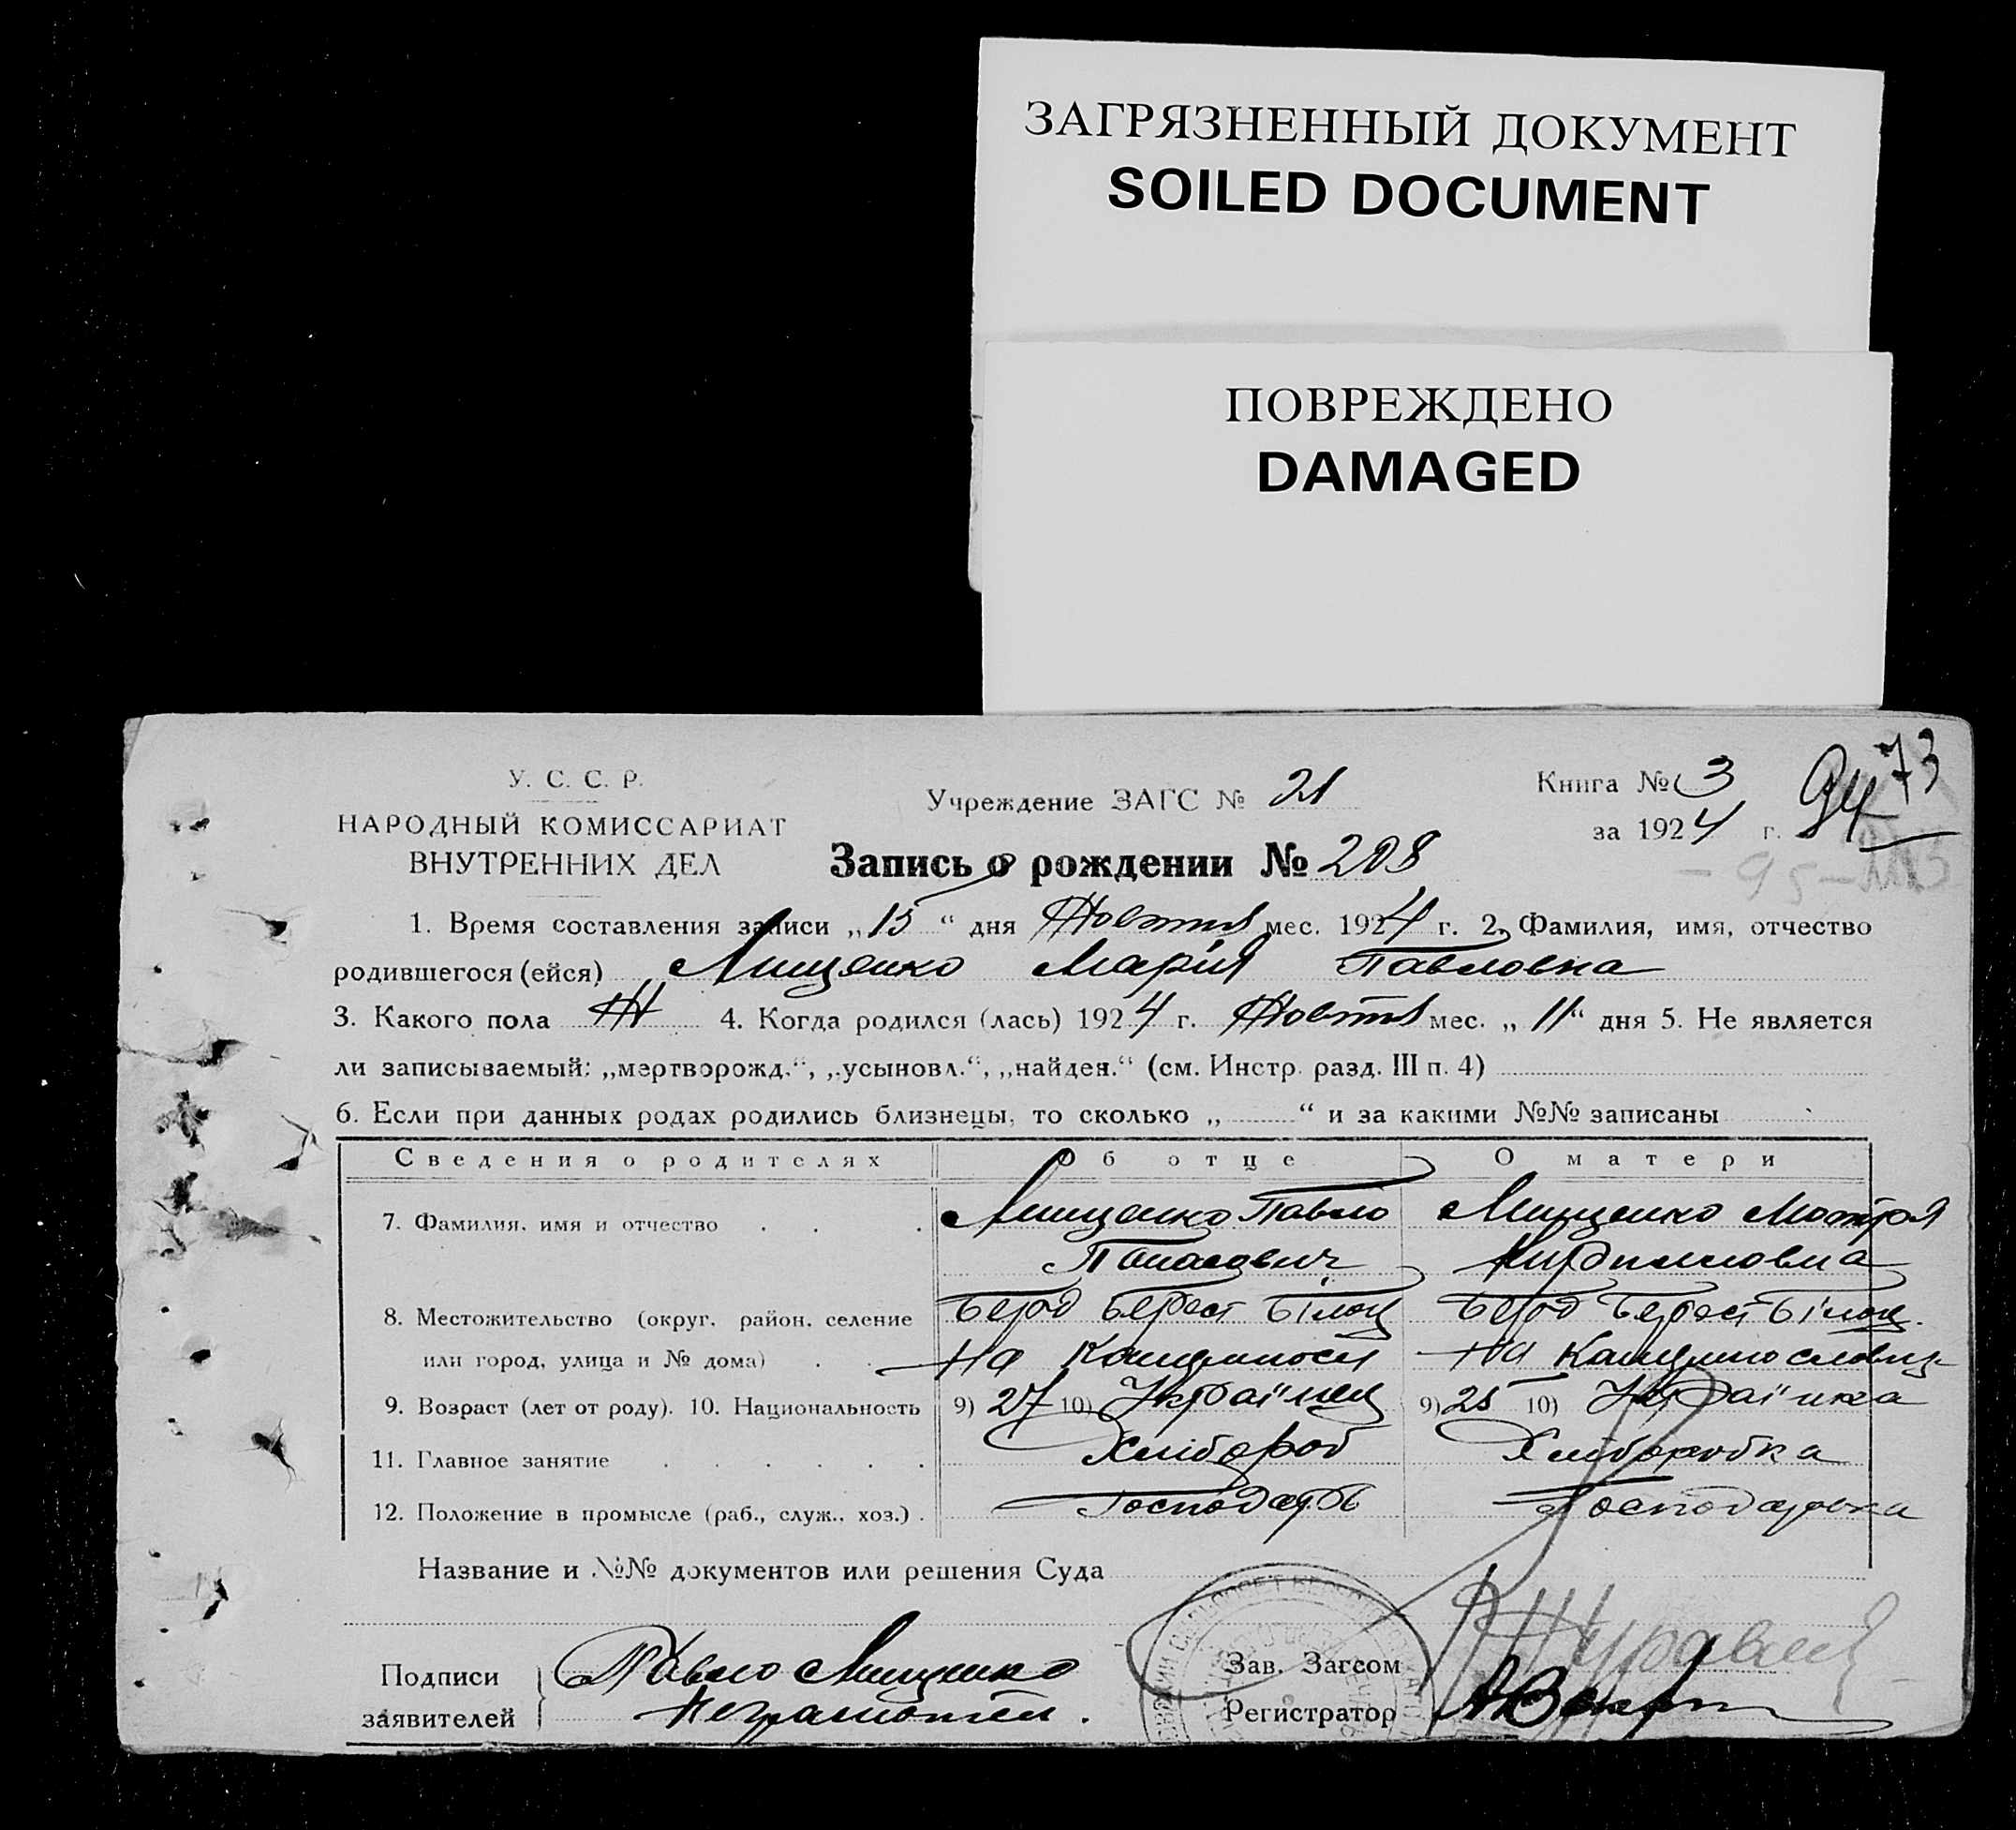 ЗАГРЯЗНЕННЫЙ ДОКУМЕНТ
SOILED DOCUMENT
ПОВРЕЖДЕНО
DAMAGED
У. С. С. Р.
НАРОДНЫЙ КОМИССАРИАТ
ВНУТРЕННИХ ДЕЛ
Учреждение ЗАГС № 21
Книга № 3
за 1924 г.
94 73
Запись о рождении № 208
1. Время составления записи „15“ дня Жовтня мес. 1924 г. 2. Фамилия, имя, отчество
родившегося (ейся) Мищенко Марія Павловна
3. Какого пола Ж 4. Когда родился (лась) 1924 г. Жовтня мес. „11“ дня 5. Не является
ли записываемый: „мертворожд.“, „усыновл.“, „найден.“ (см. Инстр. разд. III п. 4)
6. Если при данных родах родились близнецы, то сколько „ “ и за какими №№ записаны
Сведения о родителях Об отце О матери
7. Фамилия, имя и отчество Мищенко Павло Мищенко Мотря
Панасович
8. Местожительство (округ, район, селение Берд Берест Білоц Берд Берест Білоц.
или город, улица и № дома) на
9. Возраст (лет от роду). 10. Национальность 9) 27 10) Украінец 9) 25 10) Украінка
11. Главное занятие Хлібороб Хлібаробка
12. Положение в промысле (раб., служ., хоз.) Господарь Господарька
Название и №№ документов или решения Суда
Подписи заявителей Павло Мищенко
Неграмотен.
Зав. Загсом
Регистратор